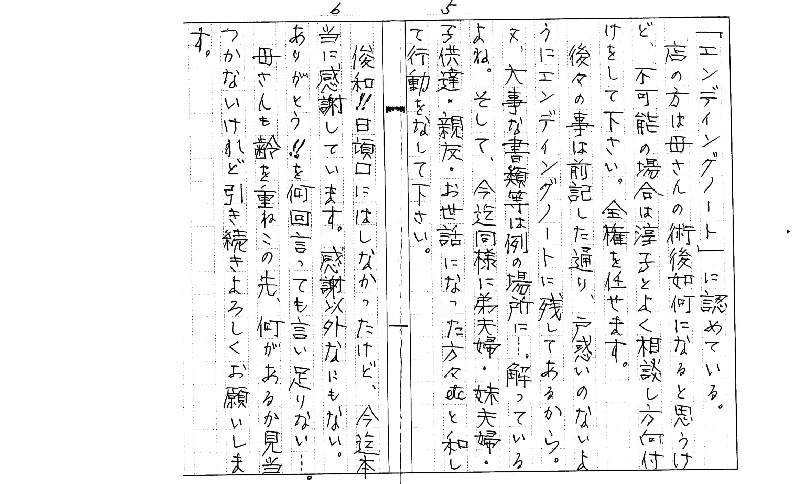 「エンディングノート」に認めている。
店の方は母さんの術後如何になると思うけ
ど、不可能の場合は淳子とよく相談し方何付
けをして下さい。全権を任せます。
後々の事は前記した通り、戸惑いのないよ
うにエンディングノートに残してあるから。
又、大事な書類等は例の場所に…。解っている
よね。そして、今迄同様に弟夫婦・妹夫婦・
子供達・親友・お世話になった方々etcと和し
て行動をなして下さい。
5
6
俊和!!日頃口にはしなかったけど、今迄本
当に感謝しています。感謝以外なにもない。
ありがとう!!を何回言っても言い足りない…。
母さんも齢を重ねこの先、何があるか見当
つかないけれど引き続きよろしくお願いしま
す。